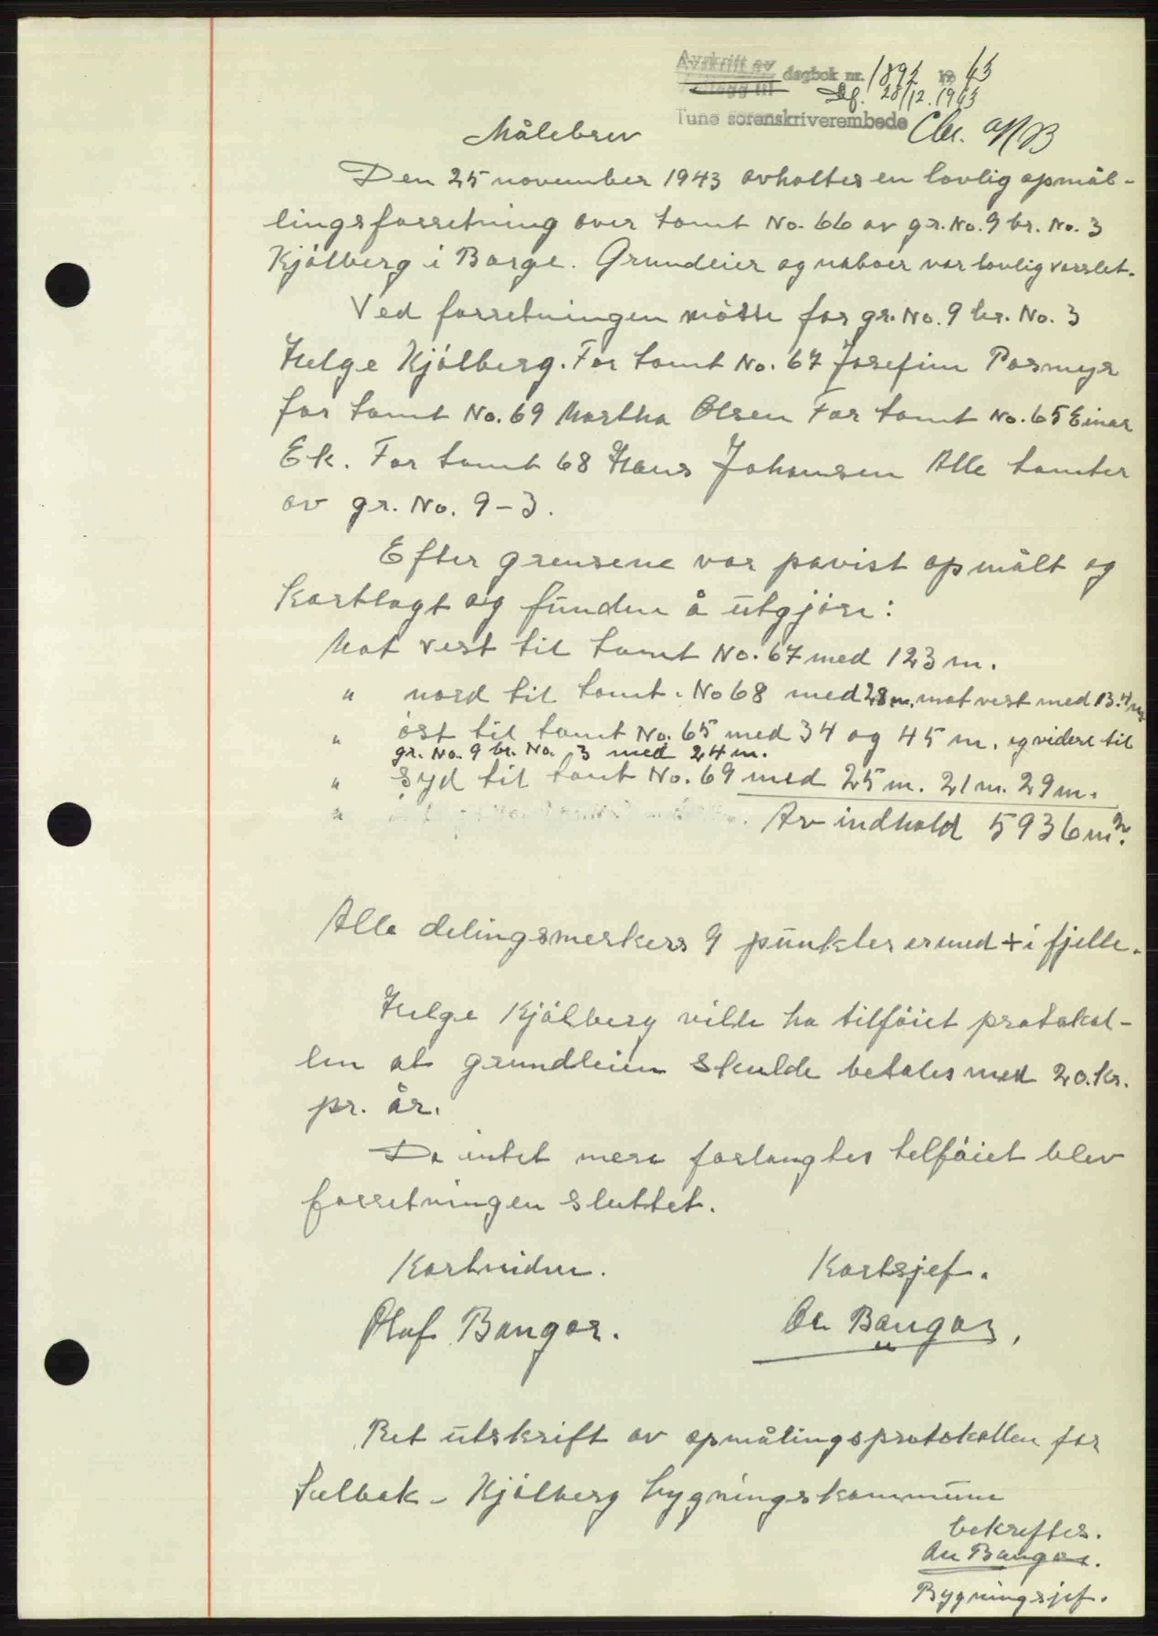 Avskrift av
dagbok nr. 1892 19 43
Df. 28/12. 1943
Tune sorenskriverembede
Målebrev
Den 25 november 1943 avholtes en lovlig opmål-
lingsforretning over tomt No. 66 av gr. No. 9 br. No. 3
Kjølberg i Borge. Grundeier og naboer var lovlig varslet.
Ved forretningen møtte for gr. No. 9 br. No. 3
Helge Kjølberg. For tomt No. 67 Josefine Posmyr
for tomt No. 69 Martha Olsen For tomt No. 65 Einar
Ek. For tomt 68 Hans Johansen Alle tomter
av gr. No. 9-3.
Efter grensene var påvist opmålt og
kartlagt og funden å utgjøre:
Mot vest til tomt No. 67 med 123 m.
" nord til tomt. No 68 med 28 m. mot vest med 13.4 m
" øst til tomt No. 65 med 34 og 45 m. og videre til
gr. No. 9 br. No. 3 med 24 m.
" syd til tomt No. 69 med 25 m. 21 m. 29 m.
" Av indhold 5936 m².
Alle delingsmerkers 9 punkter er med + i fjelle.
Helge Kjølberg vilde ha tilføiet protokol-
len at grundleien skulde betales med 20. kr.
pr. år.
Da intet mere forlangtes telføiet blev
forretningen sluttet.
Kartvidne. Kartsjef.
Olaf Bangar. An Bangar,
Ret utskrift av opmålingsprotokollen for
Selbak - Kjølberg bygningskommune
bekreftes.
An Bangar.
Bygningsjef.